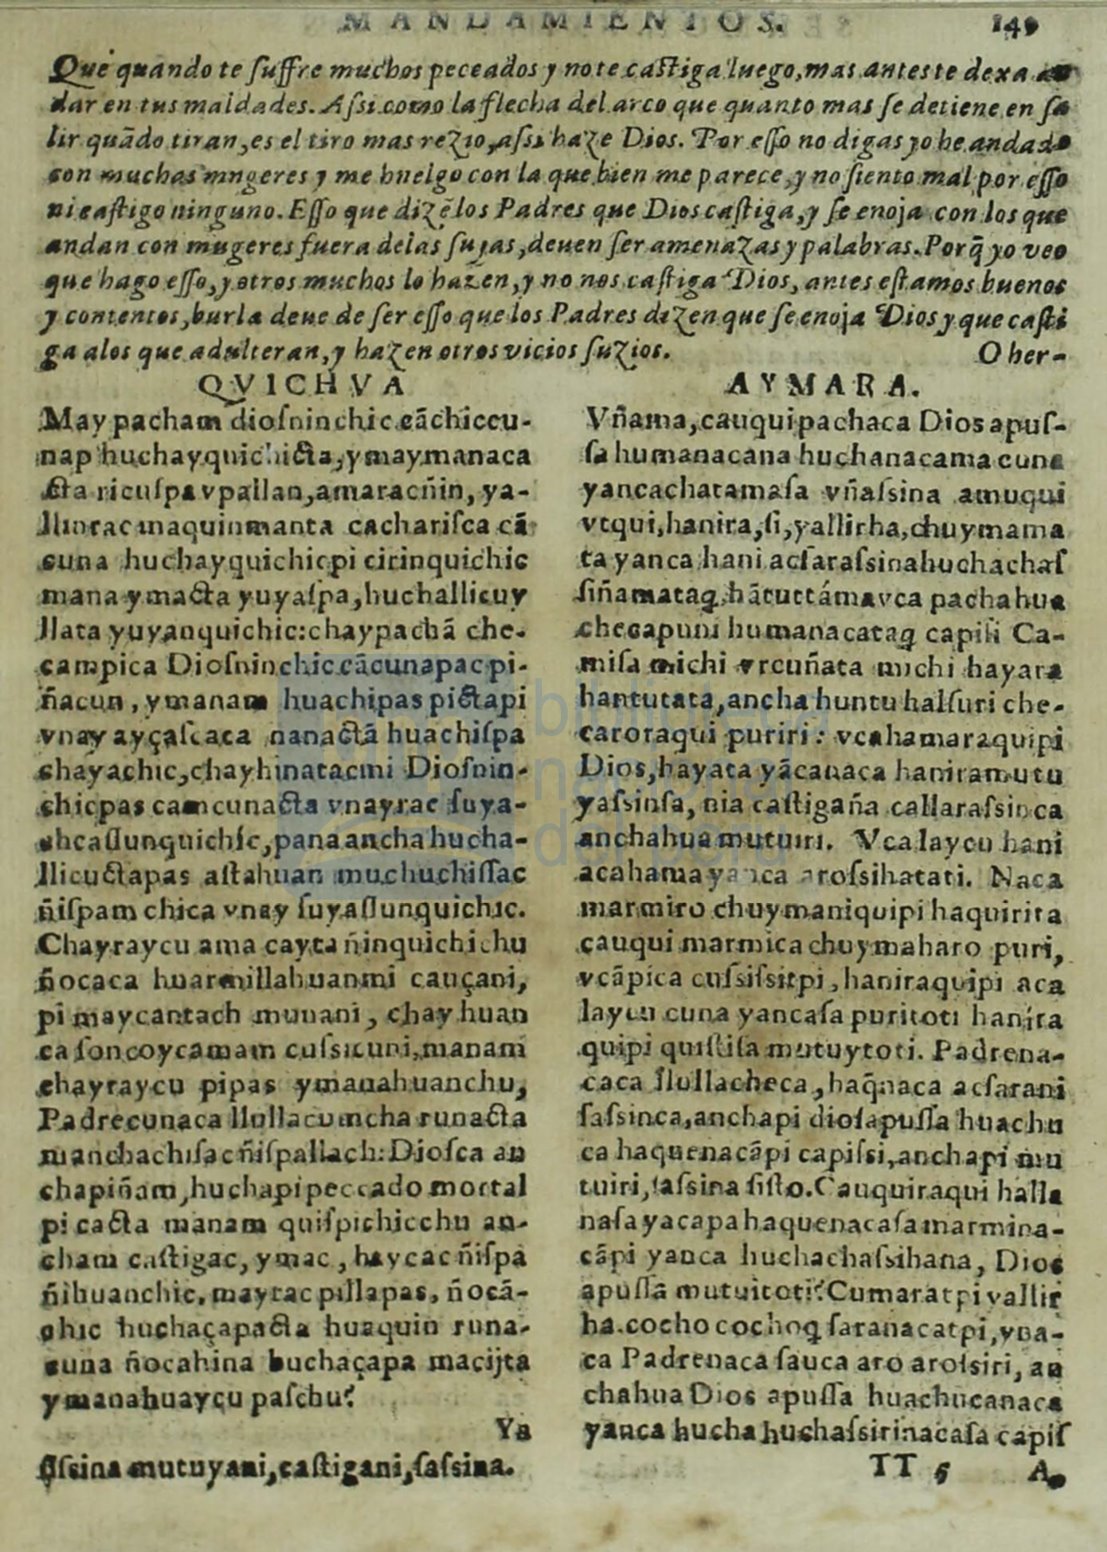 MANDAMIENTOS. 149
Que quando te ſuffre muchos peccados y no te caſtiga luego, mas antes te dexa an
dar en tus maldades. Aſsi como la flecha del arco que quanto mas ſe detiene en ſa
lir quãdo tiran, es el tiro mas rezio, aſsi haze Dios. Por eſſo no digas yo he andado
con muchas mugeres y me huelgo con la que bien me parece, y no ſiento mal por eſſo
ni caſtigo ninguno. Eſſo que dizẽ los Padres que Dios caſtiga, y ſe enoja con los que
andan con mugeres fuera delas ſuyas, deuen ſer amenazas y palabras. Porq̃ yo veo
que hago eſſo, y otros muchos lo hazen, y no nos caſtiga Dios, antes eſtamos buenos
y contentos, burla deue de ſer eſſo que los Padres dizen que ſe enoja Dios y que caſti
ga alos que adulteran, y hazen otros vicios ſuzios. O her-
QVICHVA
May pacham dioſninchic cãchiccu-
nap huchayquichicta, ymaymanaca
cta ricuſpa vpallan, amaracñin, ya-
llinrac maquinmanta cachariſca cã
cuna huchayquichicpi cirinquichic
mana ymacta yuyaſpa, huchallicuy
llata yuyanquichic: chaypachã che-
campica Dioſninchic cãcunapac pi-
ñacun, ymanam huachipas pictapi
vnay ayçaſcaca nanactã huachiſpa
chayachic, chayhinatacmi Dioſnin-
chicpas camcunacta vnayrac ſuya-
ahcaſſunquichic, pana ancha hucha-
llicuctapas aſtahuan muchuchiſſac
ñiſpam chica vnay ſuyaſſunquichic.
Chayraycu ama cayta ñinquichichu
ñocaca huarmillahuanmi cauçani,
pi maycantach munani, chay huan
ca ſoncoycamam cuſsicuni, manam
chayraycu pipas ymanahuanchu,
Padrecunaca llullacuncha runacta
manchachiſac ñiſpallach: Dioſca an
chapiñam, huchapi peccado mortal
pi cacta manam quiſpichicchu an-
cham caſtigac, ymac, haycac ñiſpa
ñihuanchic, mayrac pillapas, ñocã-
chic huchaçapacta huaquin runa-
cuna ñocahina huchaçapa maçijta
ymanahuaycu paſchu?
Ya
AYMARA.
Vñama, cauquipachaca Dios apuſ-
ſa humanacana huchanacama cuna
yancachatamaſa vñaſsina amuqui
vtqui, hanira, ſi, yallirha, chuymama
ta yanca hani acſaraſsina huchachaſ
ſiñamataq̃, hãtuctámavca pachahua
checapuni humanacataq̃ capiſi Ca-
miſa michi vrcuñata michi hayara
hantutata, ancha huntu halſuri che-
caroraqui puriri: vcahamaraquipi
Dios, hayata yãcanaca haniramutu
yaſsinſa, nia caſtigaña callaraſsinca
anchahua mutuiri. Vcalaycu hani
acahama yanca aroſsihatati. Naca
marmiro chuymaniquipi haquirira
cauqui marmica chuymaharo puri,
vcãpica cuſsiſsitpi, haniraquipi aca
laycu cuna yancaſa puritoti hanira
quipi quiſtiſa mutuytoti. Padrena-
caca llullacheca, haq̃naca acſarani
ſaſsinca, anchapi dioſapuſſa huachu
ca haquenacãpi capiſsi, anchapi mu
tuiri, ſaſsina ſiſto. Cauquiraqui halla
naſa yacapa haquenacaſa marmina-
cãpi yanca huchachaſsihana, Dios
apuſſã mutuitoti? Cumaratpi yallir
ha. cocho cochoq̃ ſaranacatpi, vna-
ca Padrenaca ſauca aro aroſsiri, an
chahua Dios apuſſa huachucanaca
yanca hucha huchaſsirinacaſa capiſ
ſſsina mutuyani, caſtigani, ſaſsina.
TT 5 A